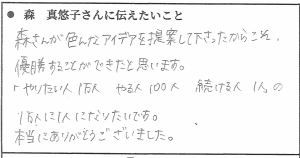 ● 森 真悠子さんに伝えたいこと
森さんが色んなアイデアを提案して下さったからこそ、
優勝することができたと思います。
「やりたい人1万人 やる人100人 続ける人 1人」の
1万人に1人になりたいです。
本当にありがとうございました。